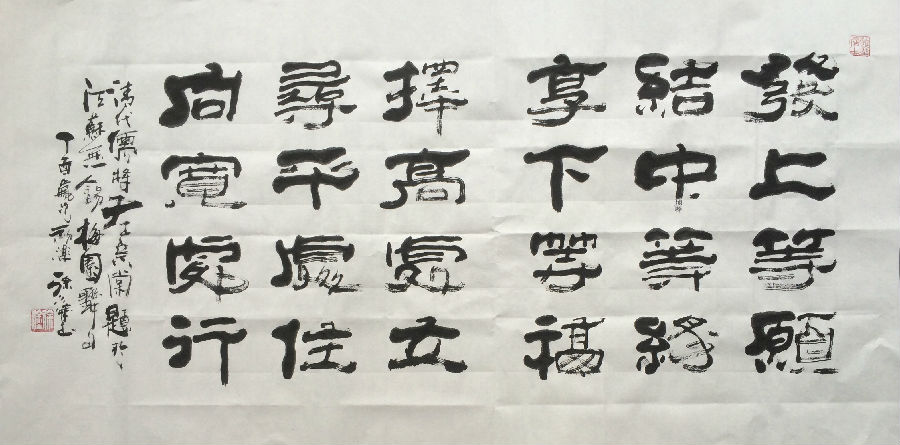 發上等願
結中等緣
享下等福
擇高處立
尋平處住
向寬處行
清代儒將左宗棠題於
江蘇無錫梅園
丁酉